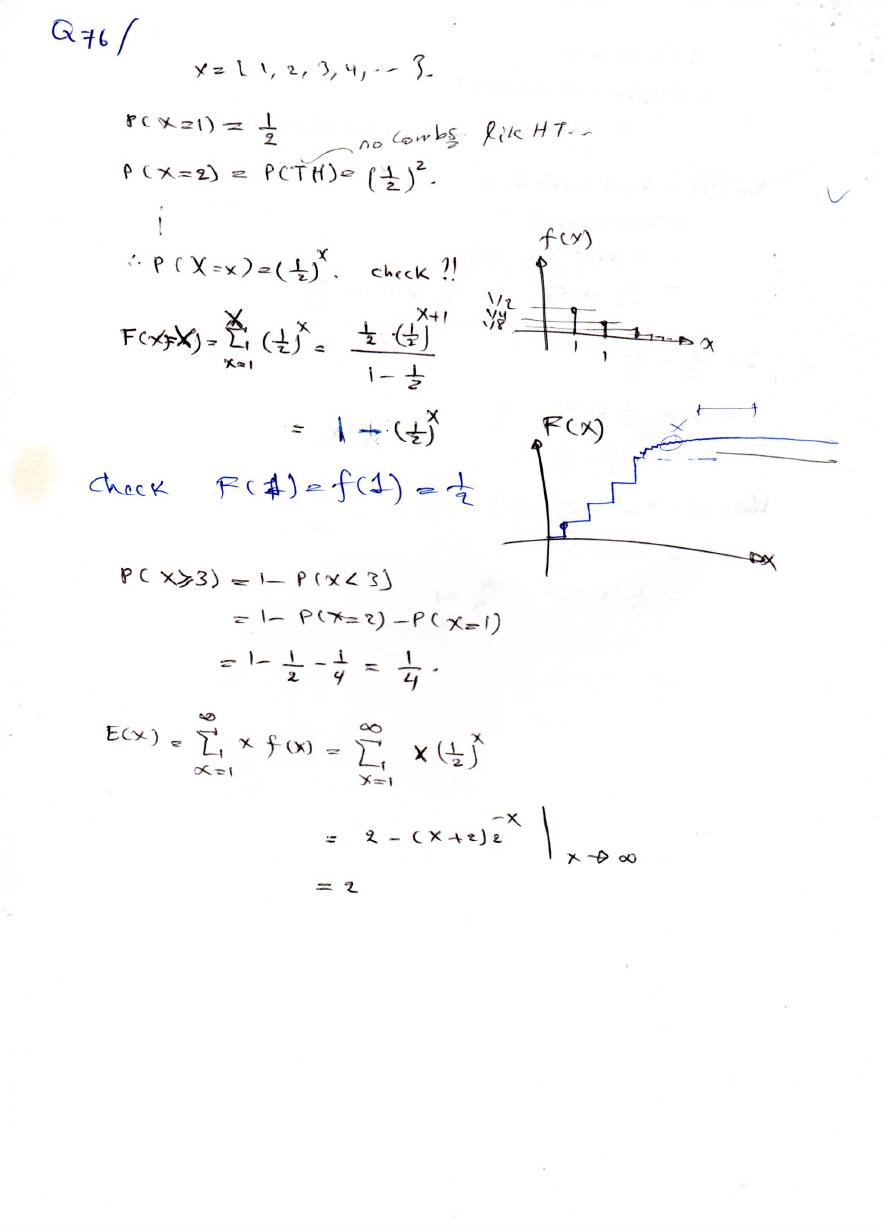 Q76/
X = { 1, 2, 3, 4, ... }.
P(X=1) = 1/2
no combs like HT...
P(X=2) = P(TH) = (1/2)^2.
⋮
∴ P(X=x) = (1/2)^x. check ?!
f(x)
1/2
1/4
1/8
1
1
x
F(x=X) = Σ_{x=1}^{X} (1/2)^x = (1/2 - (1/2)^{X+1}) / (1 - 1/2)
= 1 - (1/2)^X
F(X)
X
X
check F(1) = f(1) = 1/2
P(X≥3) = 1 - P(X<3)
= 1 - P(X=2) - P(X=1)
= 1 - 1/2 - 1/4 = 1/4.
E(X) = Σ_{x=1}^{∞} x f(x) = Σ_{x=1}^{∞} x (1/2)^x
= 2 - (X+2)2^{-X} |_{x→∞}
= 2